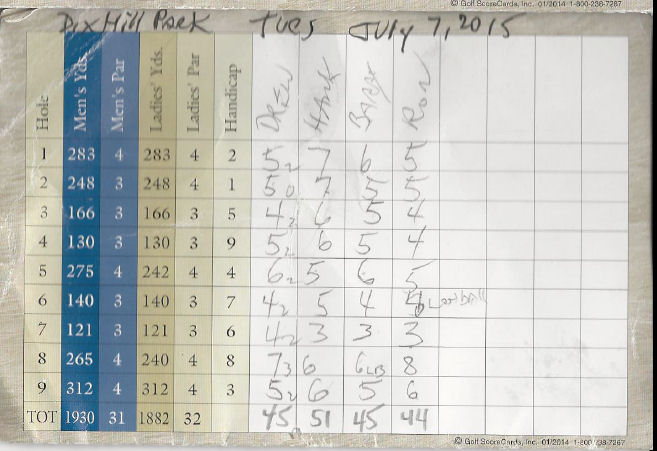 © Golf ScoreCards, Inc. 01/2014 1-800-238-7267
Dix Hill Park Tues July 7, 2015
Hole Men's Yds. Men's Par Ladies' Yds. Ladies' Par Handicap DREW HANK Ron
1 283 4 283 4 2 5 2 7 6 5
2 248 3 248 4 1 5 0 7 5 5
3 166 3 166 3 5 4 2 6 5 4
4 130 3 130 3 9 5 2 6 5 4
5 275 4 242 4 4 6 2 5 6 5
6 140 3 140 3 7 4 2 5 4 Lost Ball
7 121 3 121 3 6 4 2 3 3 3
8 265 4 240 4 8 7 3 6 6 8
9 312 4 312 4 3 5 2 6 5 6
TOT 1930 31 1882 32 45 51 45 44
© Golf ScoreCards, Inc. 01/2014 1-800-238-7267